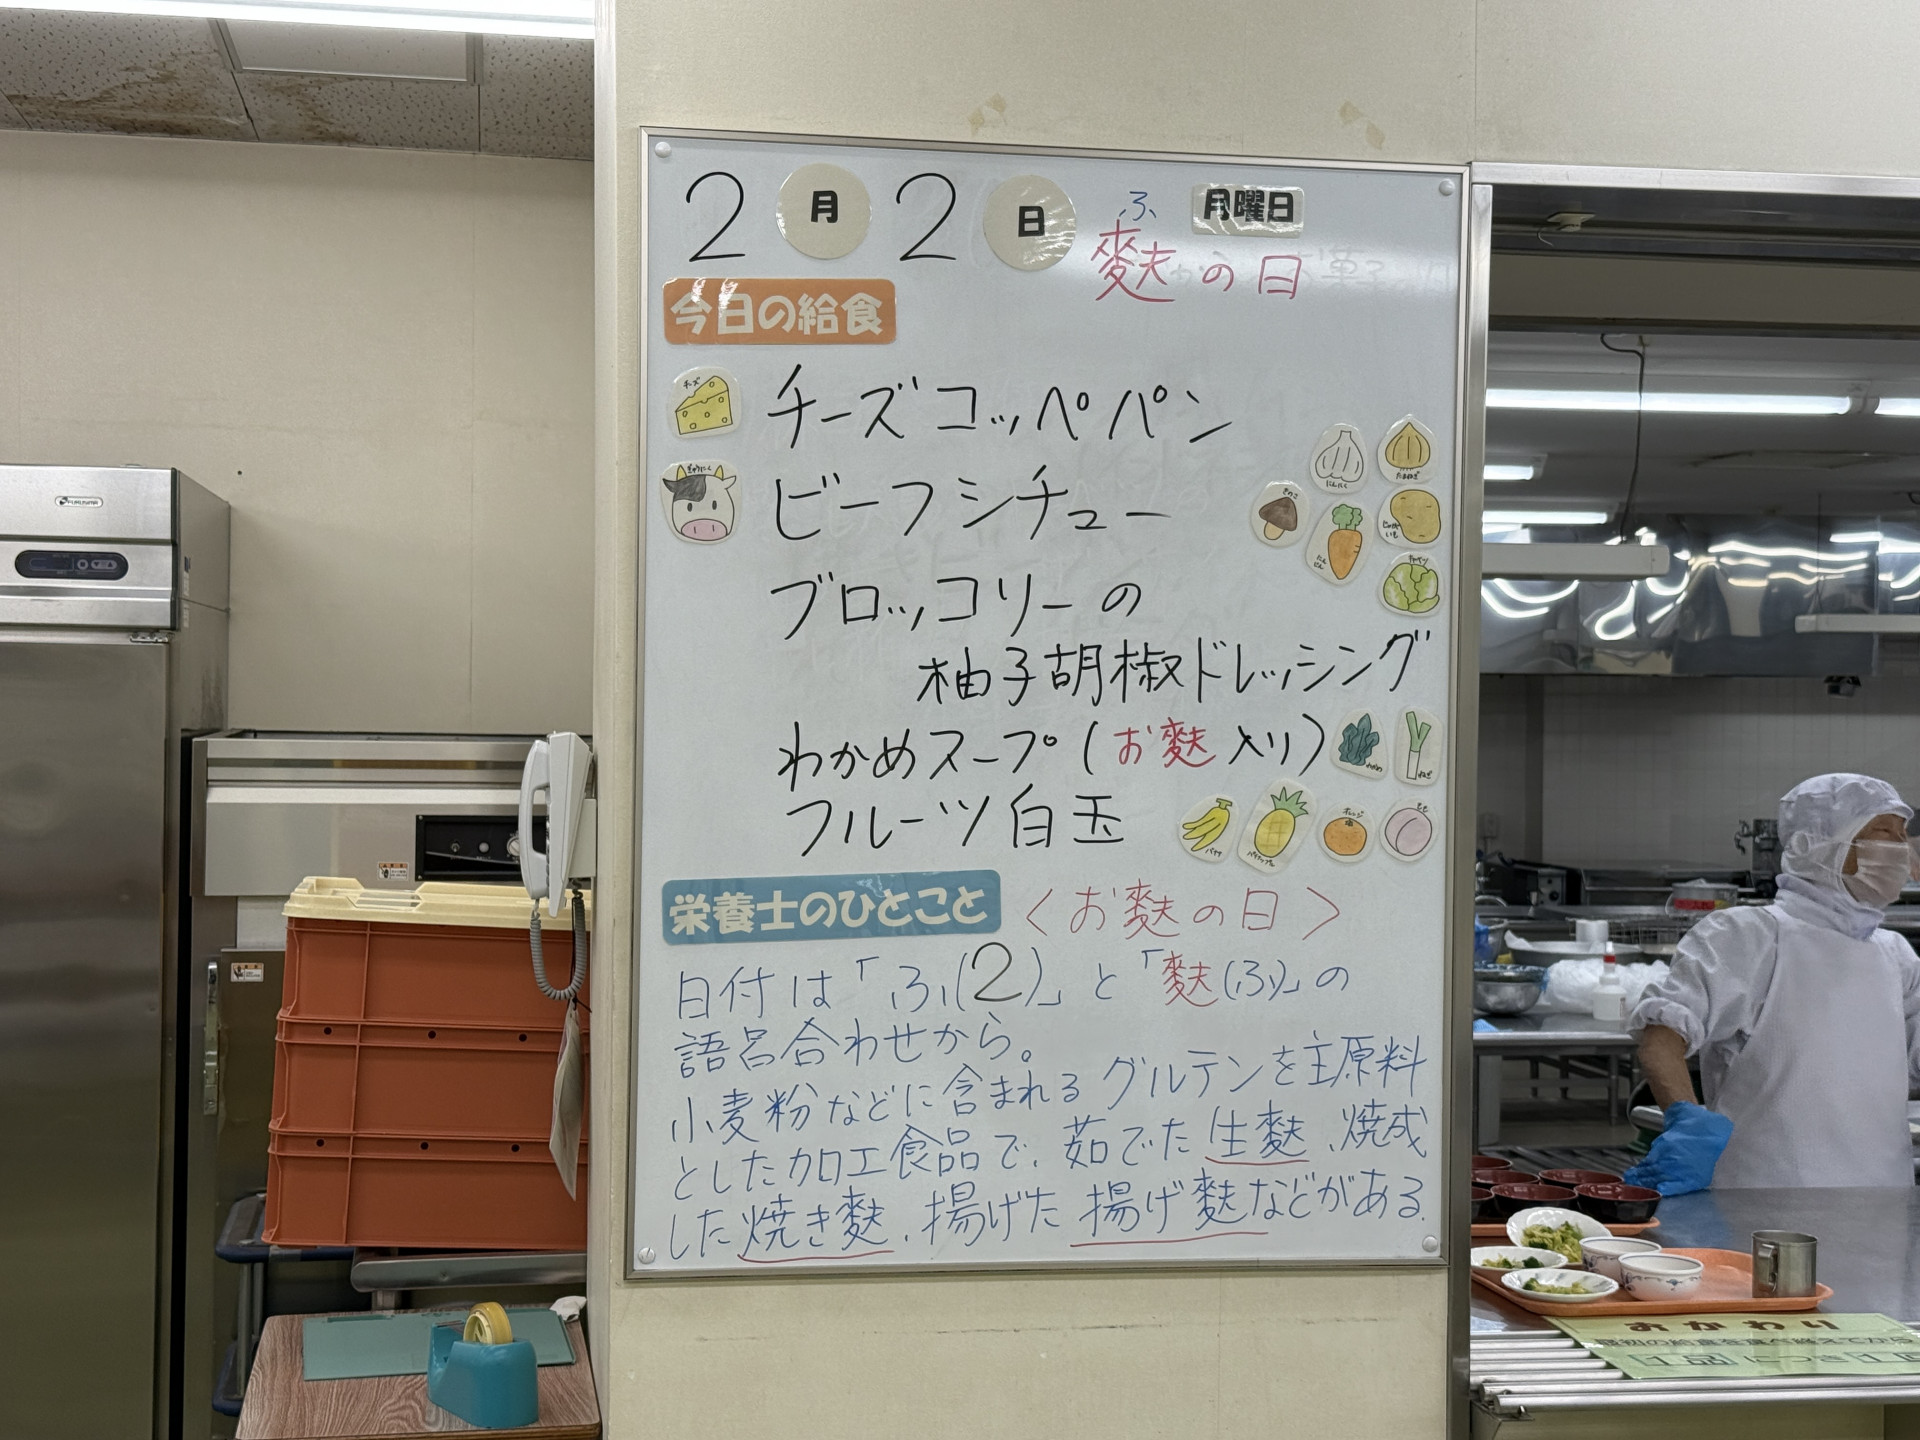 2月2日 月曜日
ふ
麩の日
今日の給食
チーズ
チーズコッペパン
ぎゅうにく
ビーフシチュー
にんにく
たまねぎ
きのこ
にんじん
じゃがいも
キャベツ
ブロッコリーの
柚子胡椒ドレッシング
わかめスープ(お麩入り)
わかめ
ねぎ
フルーツ白玉
バナナ
パイナップル
オレンジ
もも
栄養士のひとこと 〈お麩の日〉
日付は「ふ(2)」と「麩(ふ)」の
語呂合わせから。
小麦粉などに含まれるグルテンを主原料
とした加工食品で、茹でた生麩、焼成
した焼き麩、揚げた揚げ麩などがある。
FUKUSHIMA
おかわり
最初の給食を食べ終えてから
1品につき1